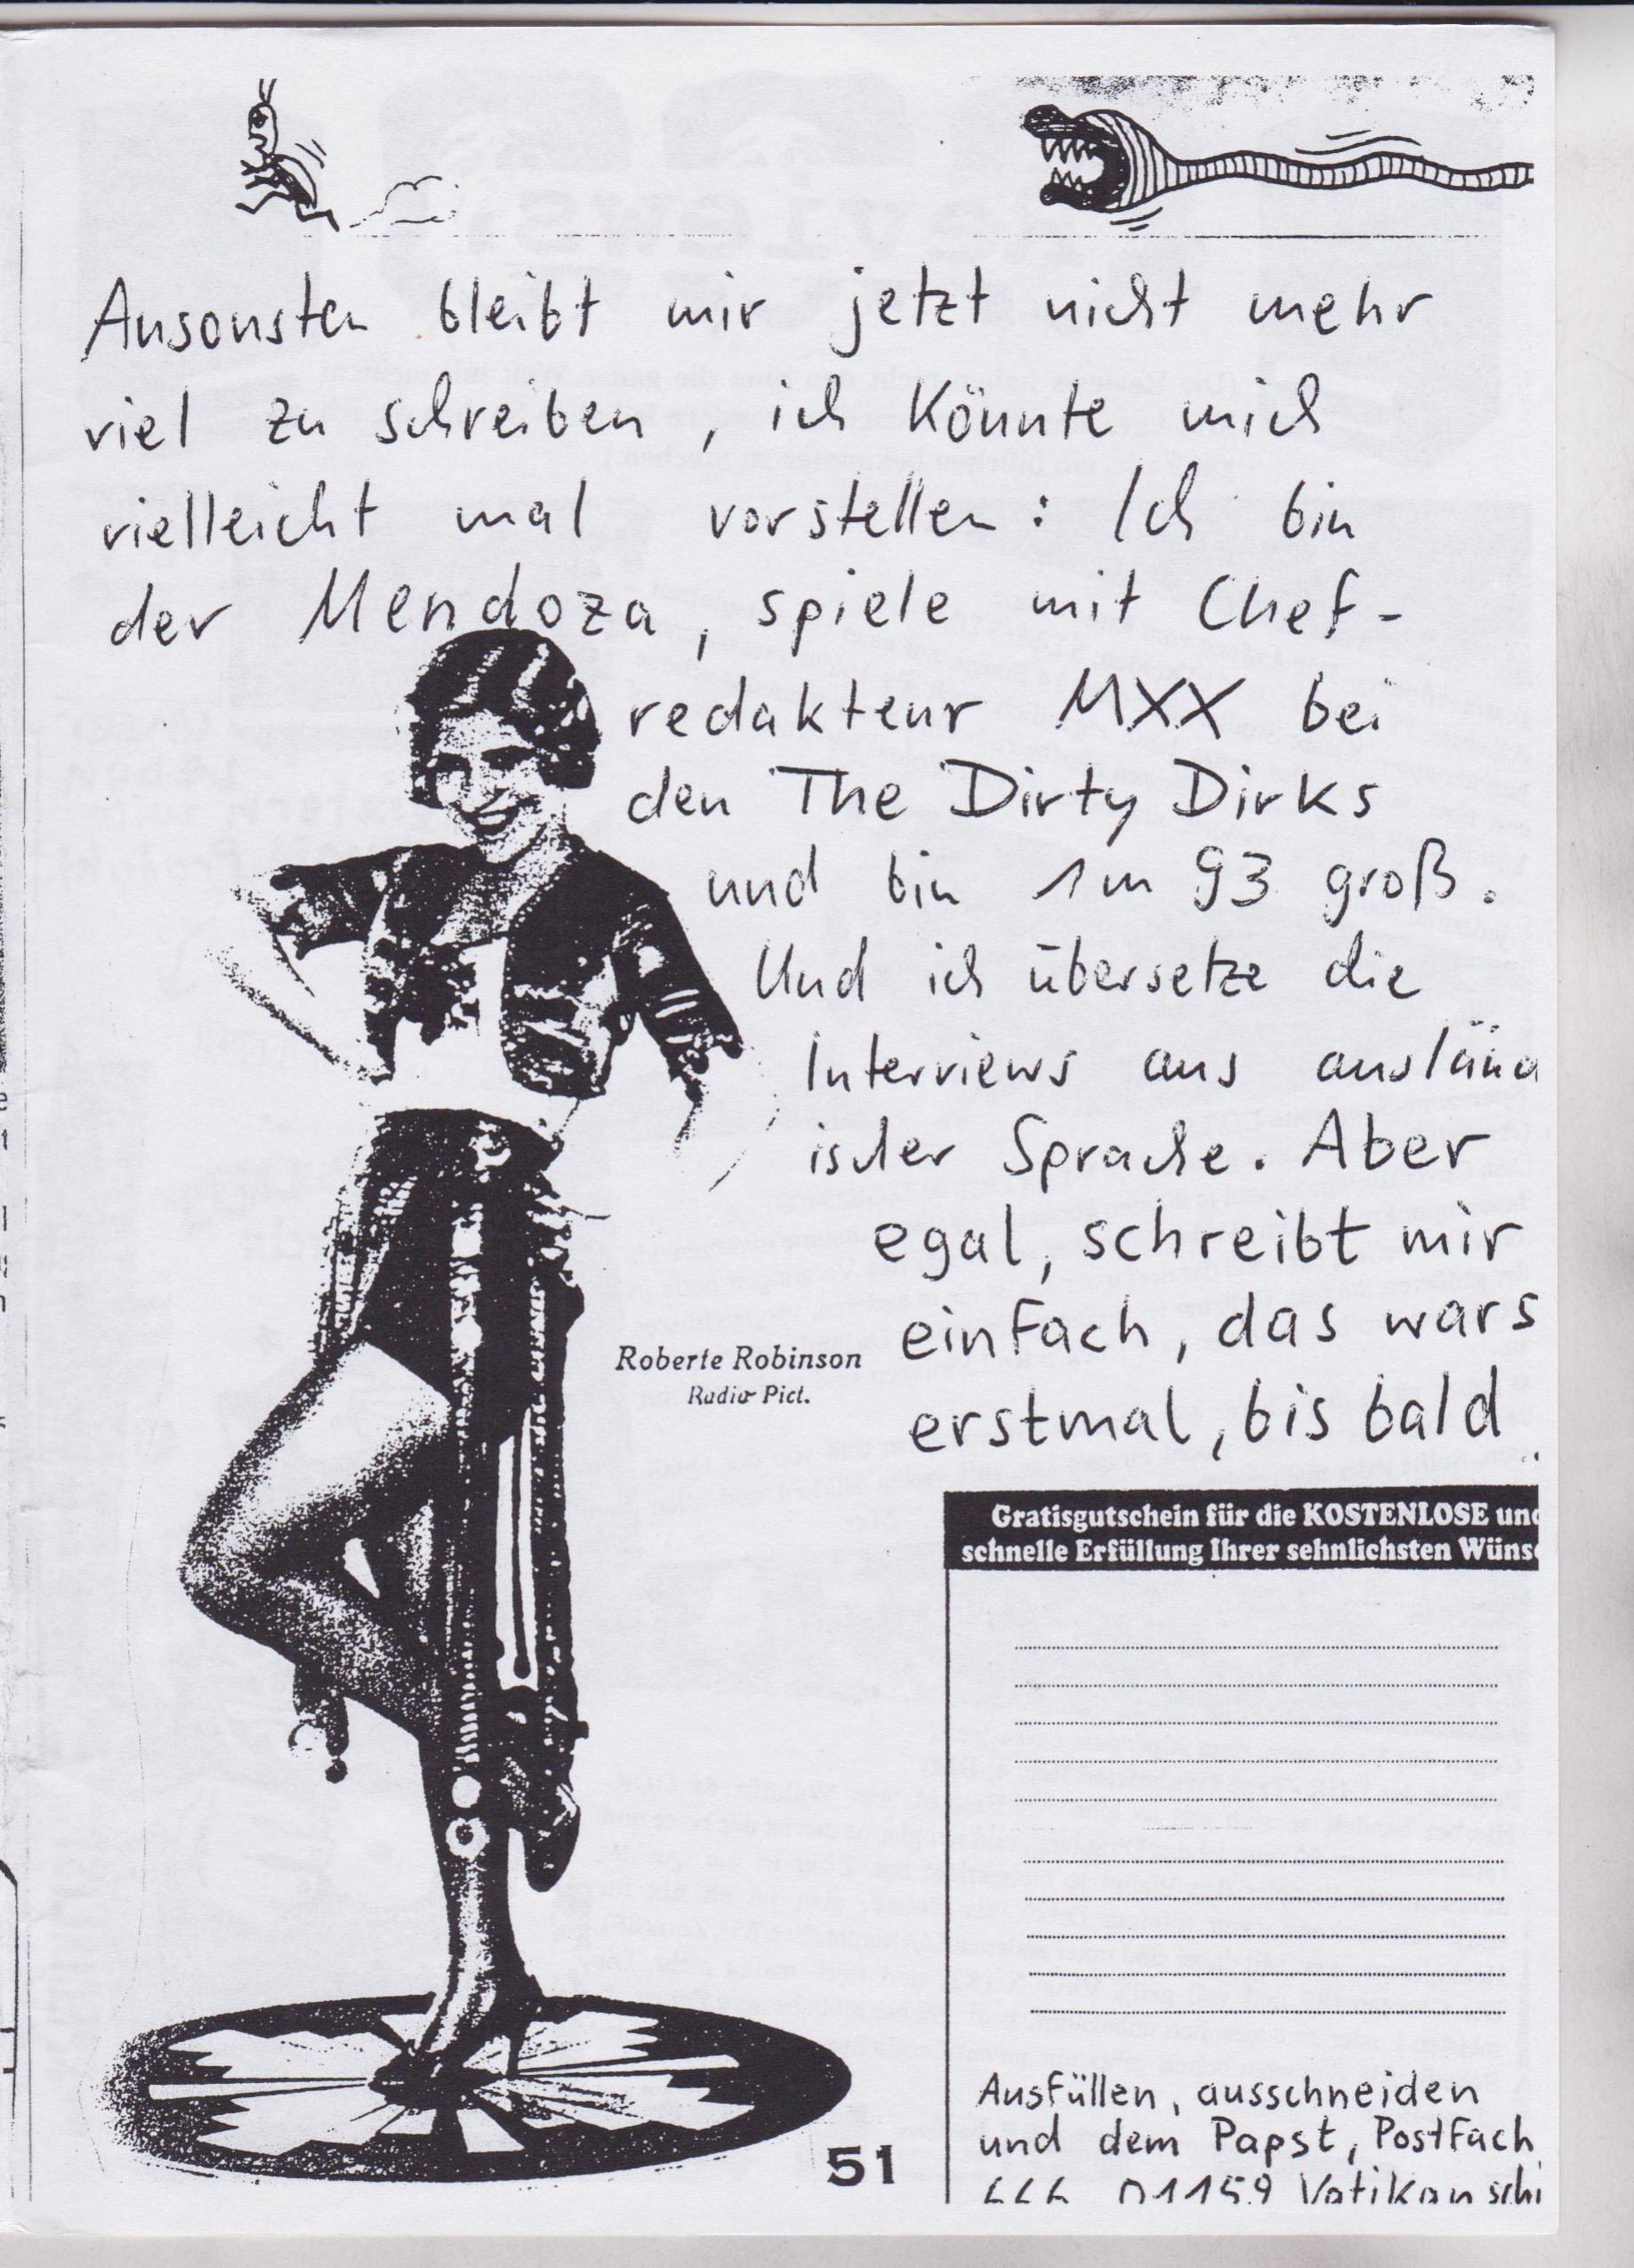 Ansonsten bleibt mir jetzt nicht mehr
viel zu schreiben, ich könnte mich
vielleicht mal vorstellen: Ich bin
der Mendoza, spiele mit Chef-
redakteur MXX bei
den The Dirty Dirks
und bin 1m 93 groß.
Und ich übersetze die
Interviews aus ausländ
ischer Sprache. Aber
egal, schreibt mir
einfach, das wars
erstmal, bis bald
Roberte Robinson
Radio Pict.
Gratisgutschein für die KOSTENLOSE und
schnelle Erfüllung Ihrer sehnlichsten Wüns
Ausfüllen, ausschneiden
und dem Papst, Postfach
01159 Vatikan schi
51